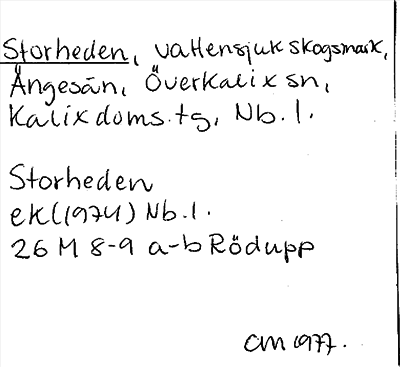 Storheden, vattensjuk skogsmark,
Ängesån, Överkalix sn,
Kalix doms.tg, Nb.l.
Storheden
ek (1974) Nb.l.
26 M 8-9 a-b Rödupp
CM 1977.